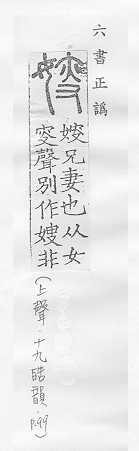 六書正譌
㛮兄妻也从女
叜聲別作嫂非
(上聲·十九皓韻·P.99)